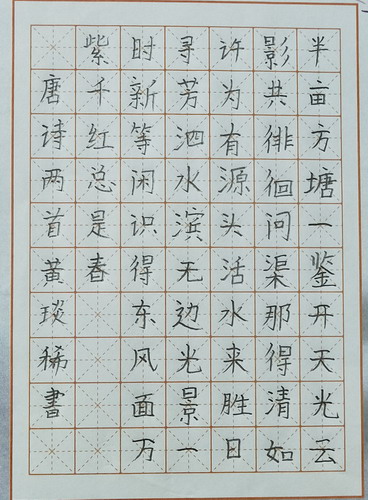 半亩方塘一鉴开天光云
影共徘徊问渠那得清如
许为有源头活水来胜日
寻芳泗水滨无边光景一
时新等闲识得东风面万
紫千红总是春
唐诗两首黄琰稀書